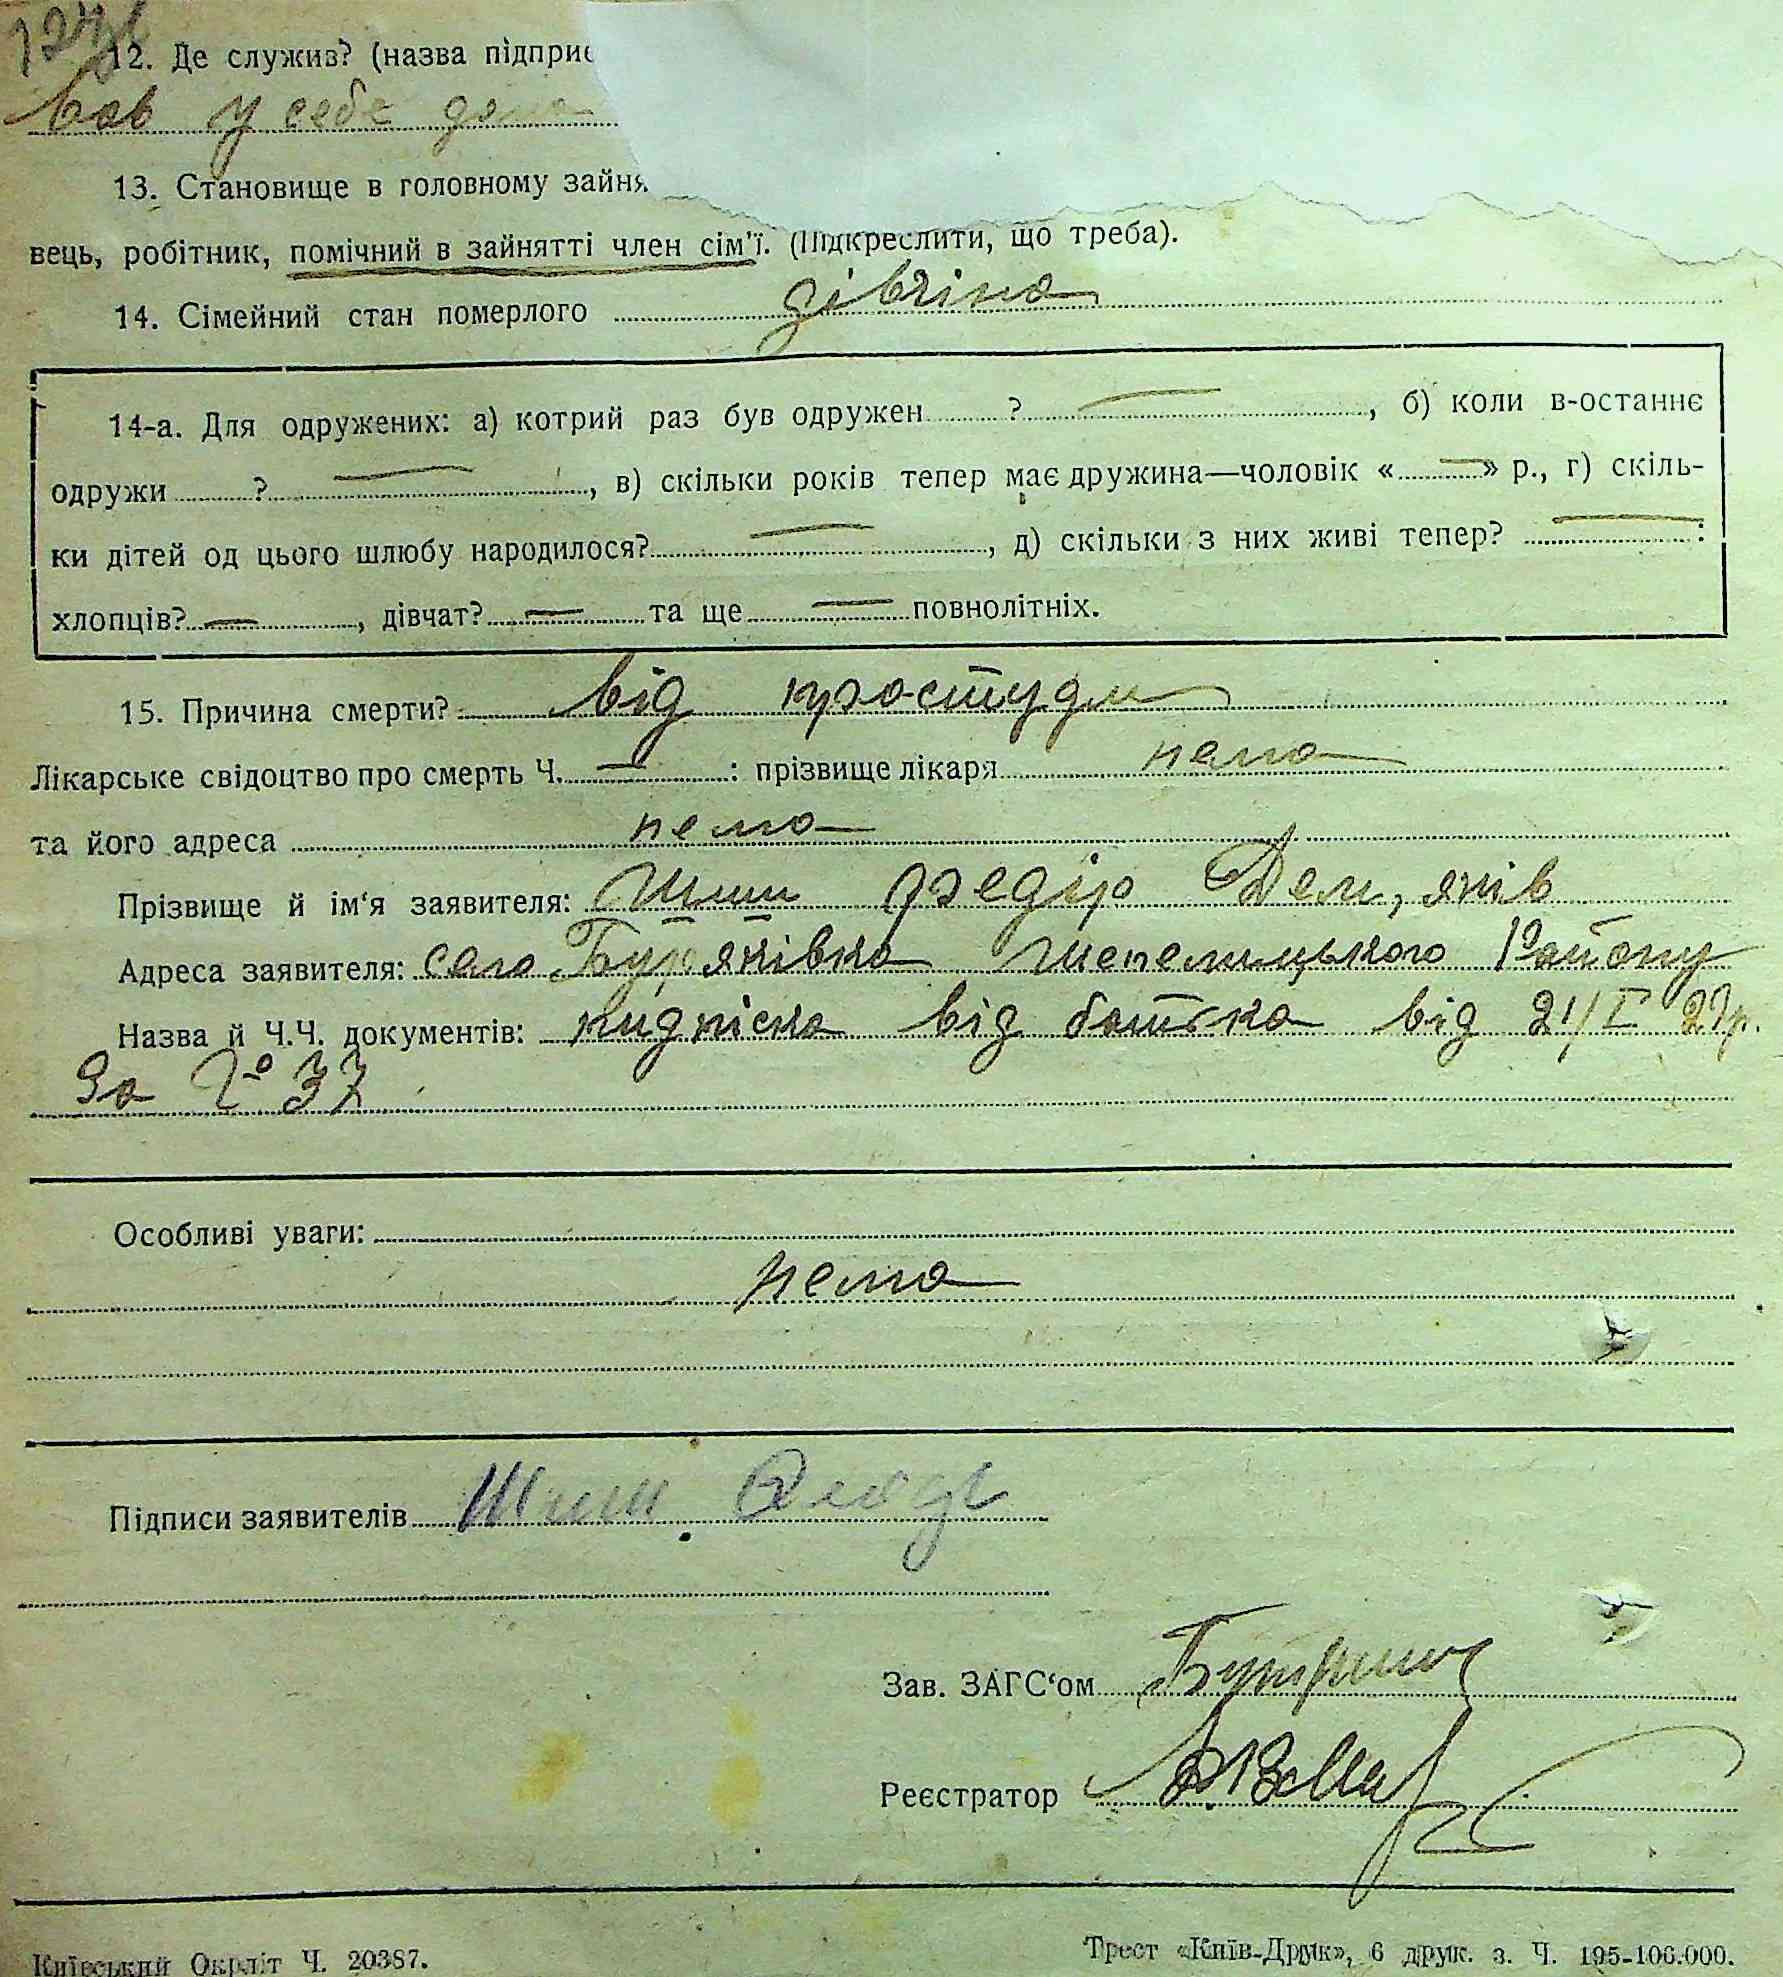 12. Де служив? (назва підприє
вав у себе дома
13. Становище в головному зайня
вець, робітник, помічний в зайнятті член сім'ї. (Підкреслити, що треба).
14. Сімейний стан померлого дівчіна
14-а. Для одружених: а) котрий раз був одружен ? —, б) коли в-останнє
одружи ? —, в) скільки років тепер має дружина—чоловік « — » р., г) скіль-
ки дітей од цього шлюбу народилося? —, д) скільки з них живі тепер? — :
хлопців? —, дівчат? — та ще — повнолітніх.
15. Причина смерти? від простуди
Лікарське свідоцтво про смерть Ч. — : прізвище лікаря нема
та його адреса нема
Прізвище й ім'я заявителя: Шиш Федір Дем,янів
Адреса заявителя: село Буряківка Шепелицького Району
Назва й Ч.Ч. документів: підпіска від батька від 21/I 27р.
За № 37
Особливі уваги:
нема
Підписи заявителів Шиш
Зав. ЗАГС'ом
Реєстратор
Київський Окрліт Ч. 20387.
Трест «Київ-Друк», 6 друк. з. Ч. 195-106.000.